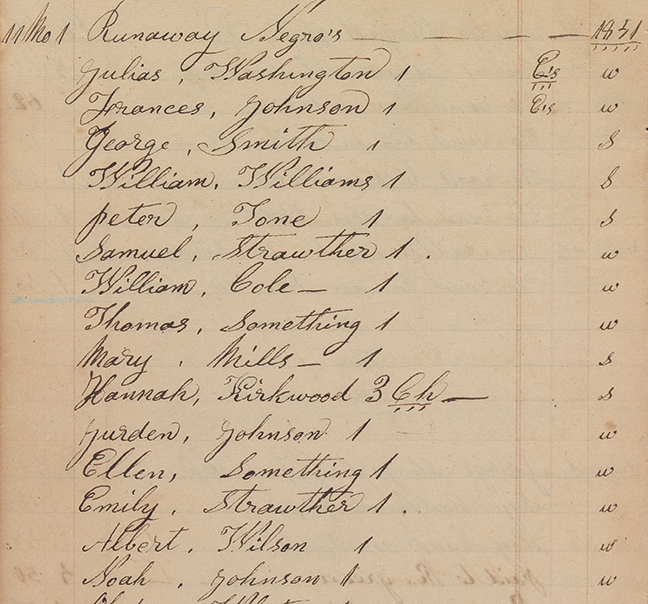 11 Mo 1 Runaway Negro's — — — — 1851
Julias, Washington 1 C's w
Frances, Johnson 1 C's w
George, Smith 1 S
William, Williams 1 S
peter, Tone 1 S
Samuel, Strawther 1. w
William, Cole — 1 w
Thomas, Something 1 w
Mary. Mills — 1 S
Hannah, Kirkwood 3 Ch — S
Jurden, Johnson 1 w
Ellen, Something 1 w
Emily, Strawther 1. w
Albert, Wilson 1 w
Noah, Johnson 1 w